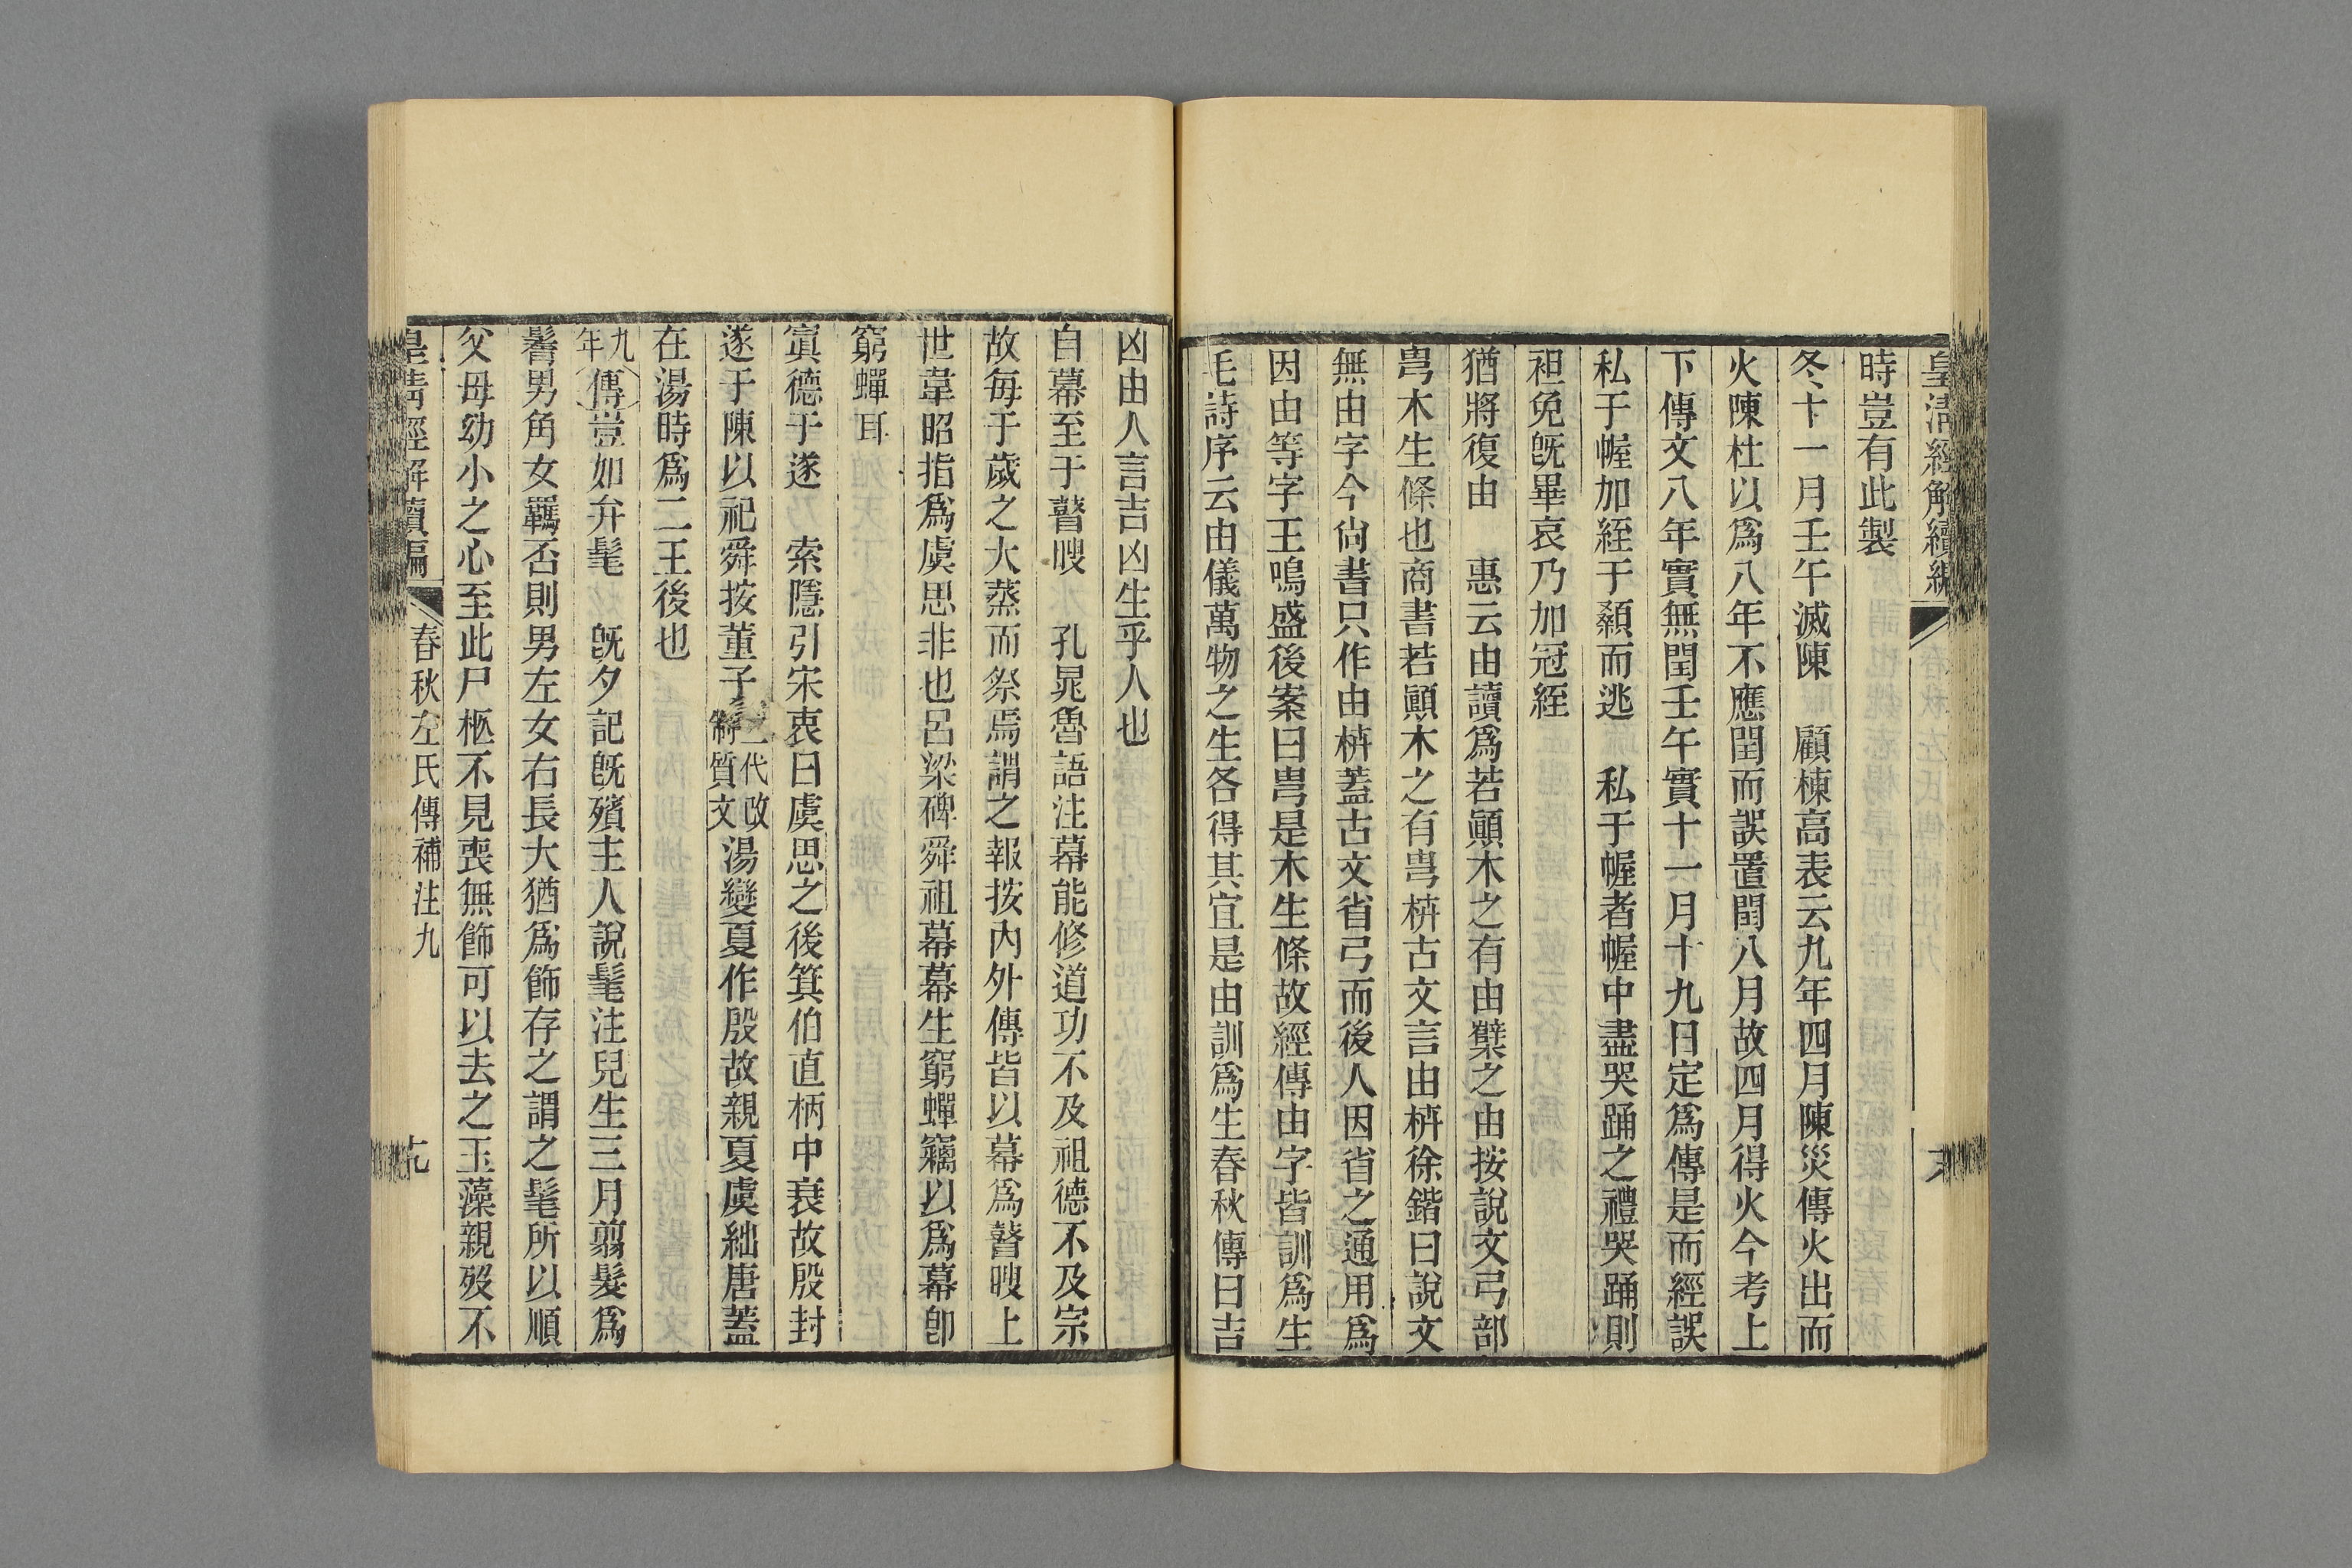 皇清經解續編
時豈有此製
冬十一月壬午滅陳　顧棟高表云九年四月陳災傳火出而
火陳杜以爲八年不應閏而誤置閏八月故四月得火今考上
下傳文八年實無閏壬午實十一月十九日定爲傳是而經誤
私于幄加絰于顙而逃　私于幄者幄中盡哭踊之禮哭踊則
袒免旣畢哀乃加冠絰
猶將復由　惠云由讀爲若顚木之有由櫱之由按說文弓部
甹木生條也商書若顚木之有甹枿古文言由枿徐鍇曰說文
無由字今尙書只作由枿蓋古文省弓而後人因省之通用爲
因由等字王鳴盛後案曰甹是木生條故經傳由字皆訓爲生
毛詩序云由儀萬物之生各得其宜是由訓爲生春秋傳曰吉
凶由人言吉凶生乎人也
自幕至于瞽瞍　孔晁魯語注幕能修道功不及祖德不及宗
故每于歲之大蒸而祭焉謂之報按內外傳皆以幕爲瞽瞍上
世韋昭指爲虞思非也呂梁碑舜祖幕幕生窮蟬竊以爲幕卽
窮蟬耳
寘德于遂　索隱引宋衷曰虞思之後箕伯直柄中衰故殷封
遂于陳以祀舜按董子一代改制質文湯變夏作殷故親夏虞絀唐蓋
在湯時爲二王後也
九年傳豈如弁髦　旣夕記旣殯主人說髦注兒生三月翦髮爲
鬌男角女羈否則男左女右長大猶爲飾存之謂之髦所以順
父母幼小之心至此尸柩不見喪無飾可以去之玉藻親歿不
皇清經解續編　春秋左氏傳補注九